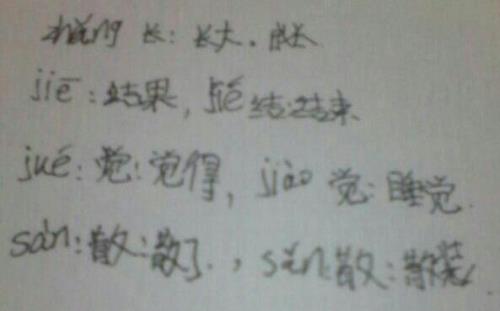 zhǎng 长：长大．成长
jiē：结果，jié 结：结束
jué：觉：觉得，jiào 觉：睡觉.
sàn：散：散了．，sǎn：散：散装